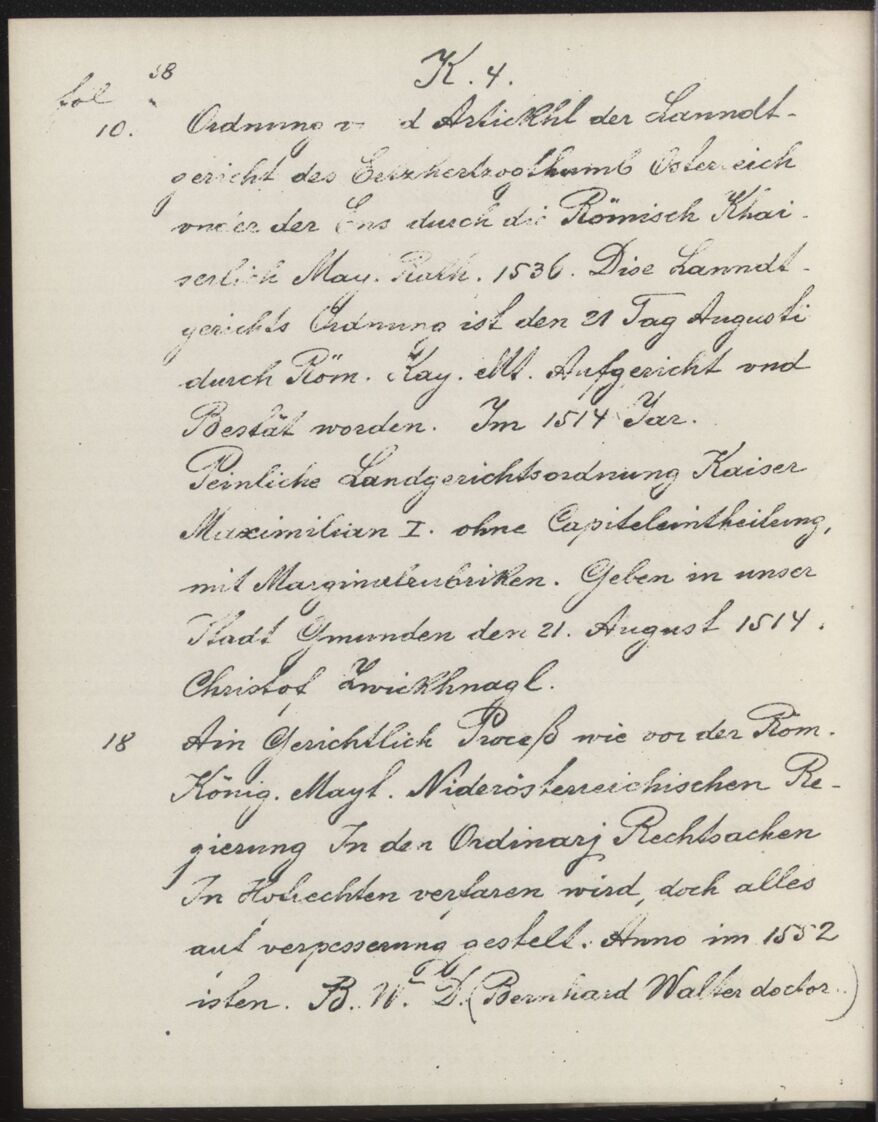 58
K. 4.
fol
10. Ordnung v d Artickhl der Lanndt-
gericht des Ertzhertzogthumb Österreich
vnder der Ens durch die Römisch Khai-
serlich May. Rath. 1536. Dise Lanndt-
gerichts Ordnung ist den 21 Tag Augusti
durch Röm. Kay. Mt. Aufgericht vnd
Bestät worden. Im 1514 Jar.
Peinliche Landgerichtsordnung Kaiser
Maximilian I. ohne Capiteleintheilung,
mit Marginalrubriken. Geben in unser
Stadt Gmunden den 21. August 1514.
Christof Zwickhnagl.
18 Ain Gerichtlich Proceß wie vor der Röm.
König. Mayt. Niderösterreichischen Re-
gierung In den Ordinarj Rechtsachen
In Hofrechten verfaren wird, doch alles
auf verpesserung gestelt. Anno im 1552
isten. B. W. D. (Bernhard Walter doctor.)